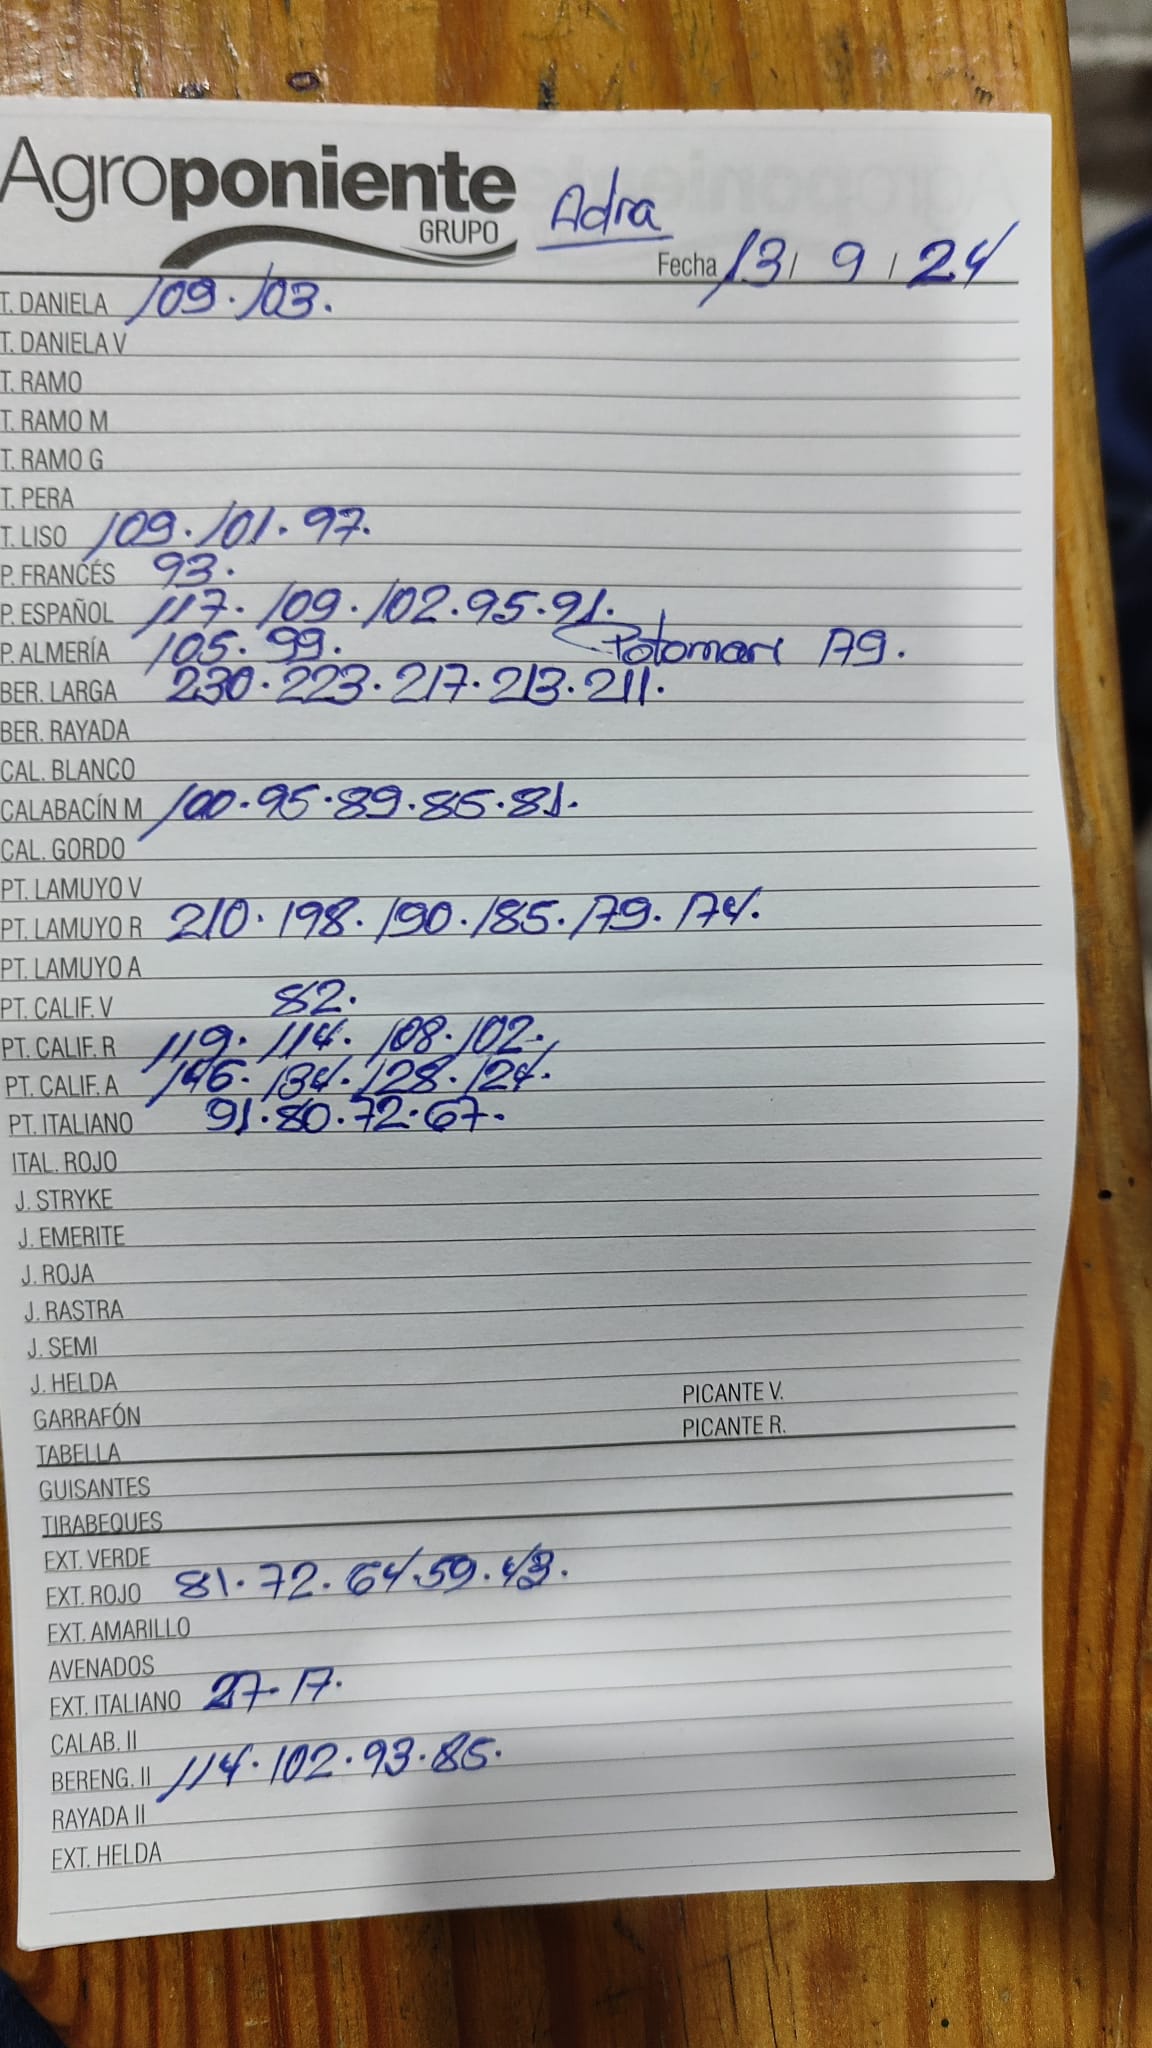 Agroponiente
GRUPO
Adra
Fecha 13 / 9 / 24
T. DANIELA 109. 103.
T. DANIELA V
T. RAMO
T. RAMO M
T. RAMO G
T. PERA
T. LISO 109. 101. 97.
P. FRANCÉS 93.
P. ESPAÑOL 117. 109. 102. 95. 91.
P. ALMERÍA 105. 99. 179.
BER. LARGA 230. 223. 217. 213. 211.
BER. RAYADA
CAL. BLANCO
CALABACÍN M 100. 95. 89. 85. 81.
CAL. GORDO
PT. LAMUYO V
PT. LAMUYO R 210. 198. 190. 185. 179. 174.
PT. LAMUYO A
PT. CALIF. V 82.
PT. CALIF. R 119. 114. 108. 102.
PT. CALIF. A 146. 134. 128. 124.
PT. ITALIANO 91. 80. 72. 67.
ITAL. ROJO
J. STRYKE
J. EMERITE
J. ROJA
J. RASTRA
J. SEMI
J. HELDA
GARRAFÓN PICANTE V.
TABELLA PICANTE R.
GUISANTES
TIRABEQUES
EXT. VERDE
EXT. ROJO 81. 72. 64. 59. 43.
EXT. AMARILLO
AVENADOS
EXT. ITALIANO 27. 17.
CALAB. II
BERENG. II 114. 102. 93. 85.
RAYADA II
EXT. HELDA